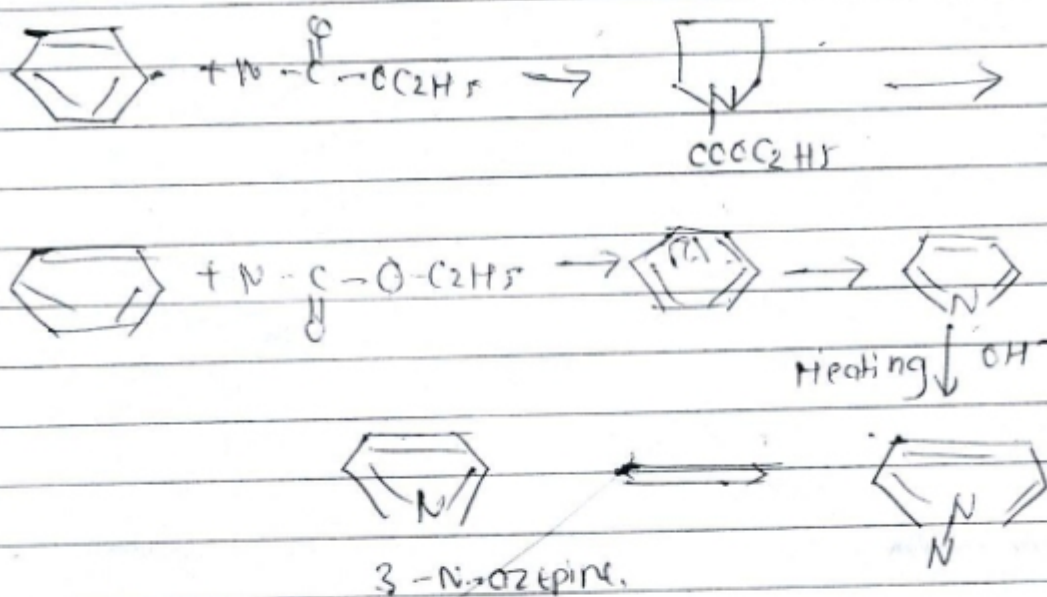 O
+ N - C - OC2H5 → N →
COOC2H5
+ N - C - O - C2H5 → → N
O
Heating ↓ OH-
N N
N
3-N-azepine.